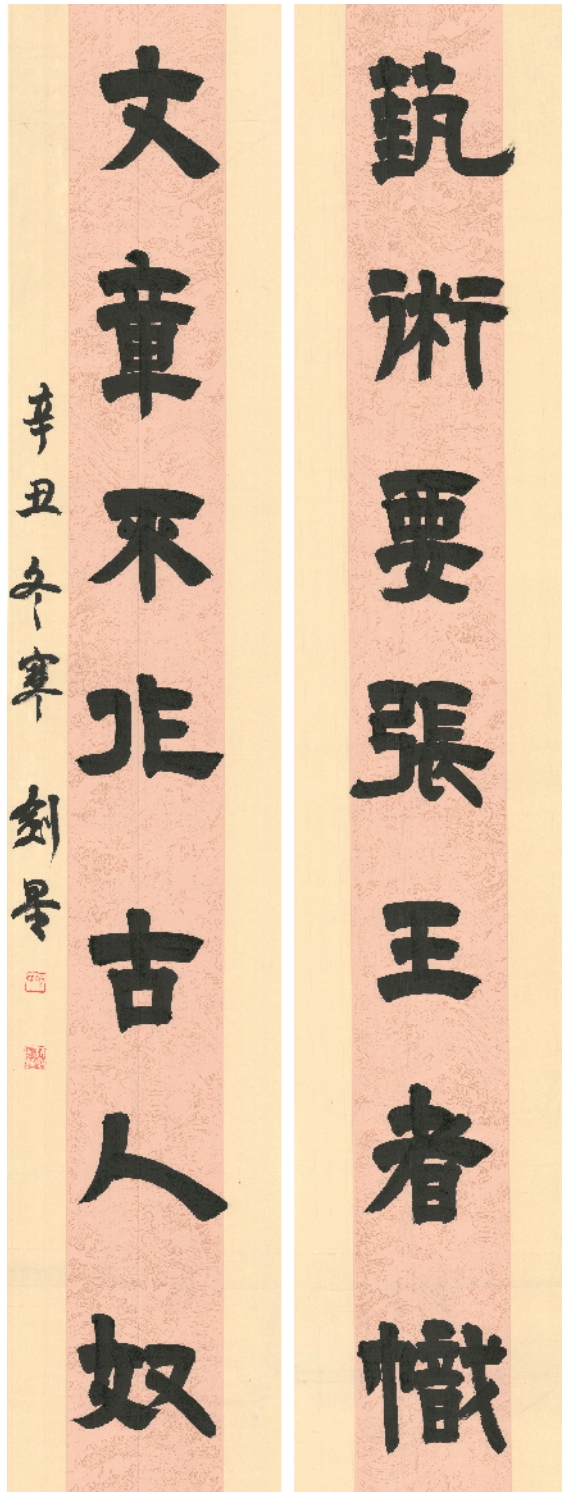 藝術要張王者幟
文章不作古人奴
辛丑冬寒 刻星